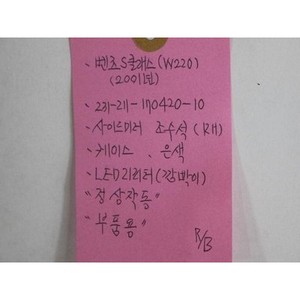 벤츠S클래스(W220)
(2001년)
231-211-170420-10
사이드미러 조수석(RH)
케이스, 은색
LED리피터(깜박이)
"정상작동"
"부품용"
R/B